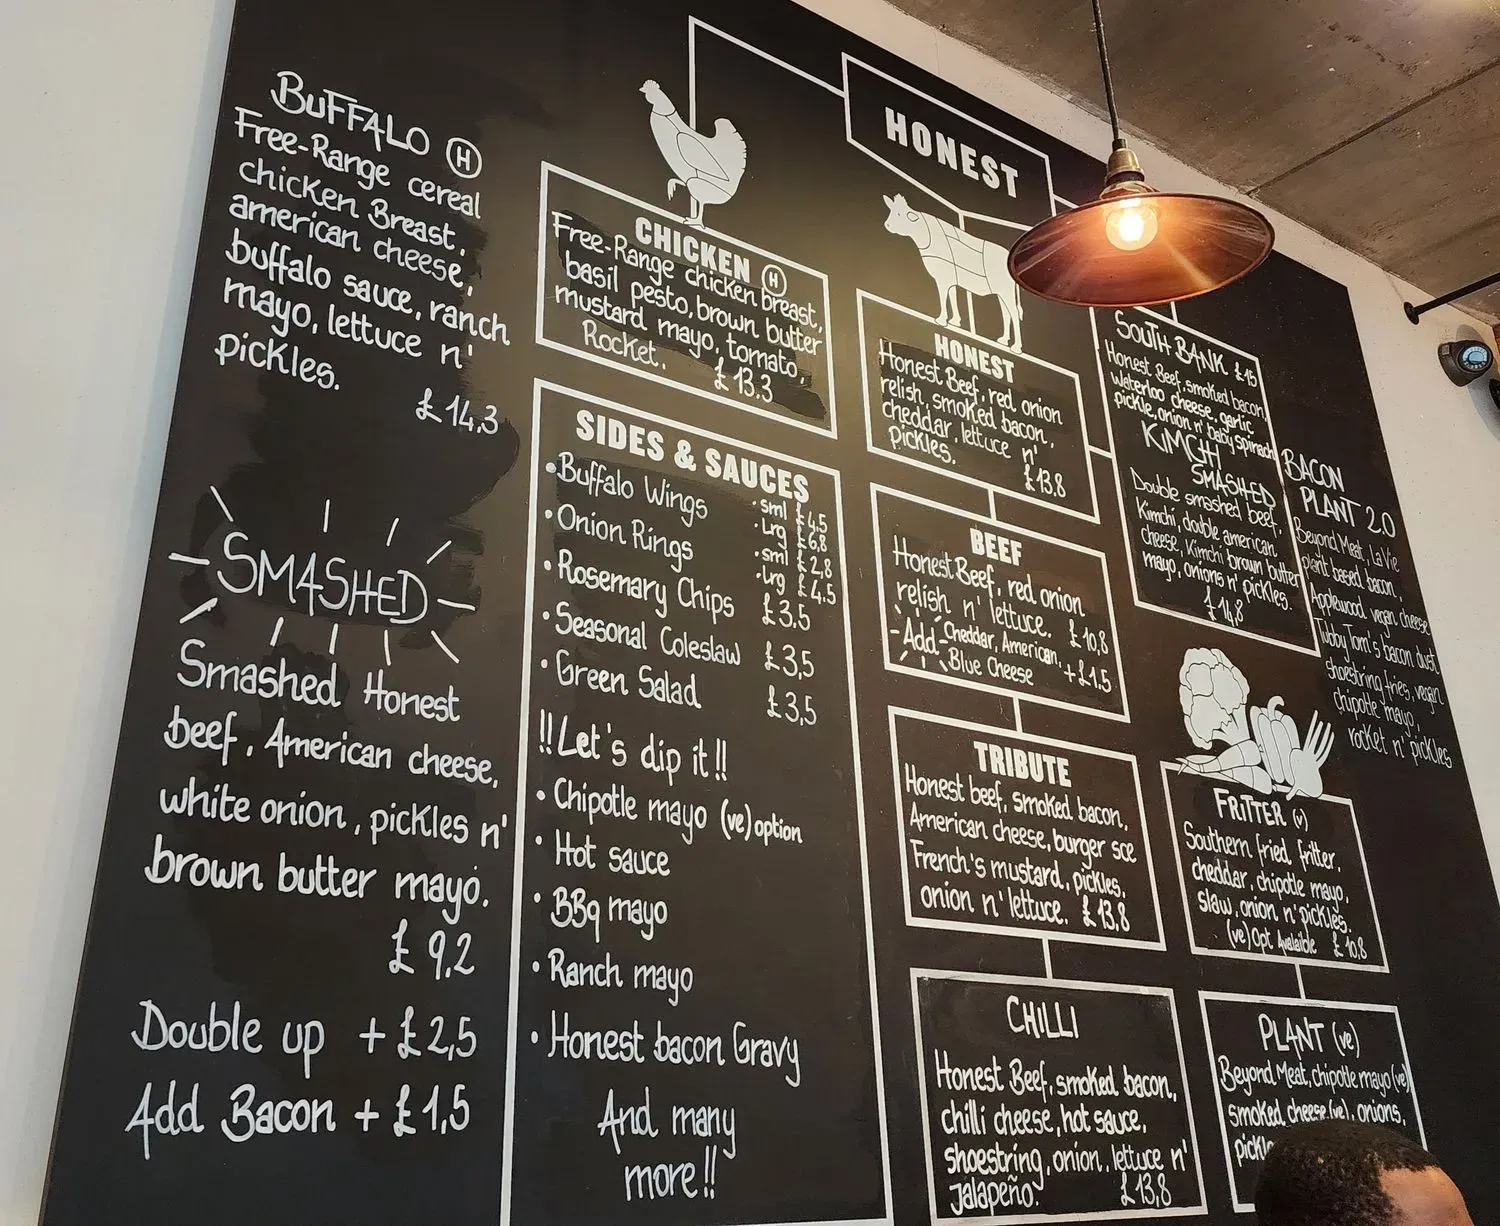 BUFFALO (H)
Free-Range cereal
chicken Breast,
american cheese,
buffalo sauce, ranch
mayo, lettuce n'
pickles.
£14.3
SMASHED
Smashed Honest
beef, American cheese,
white onion, pickles n'
brown butter mayo.
£9.2
Double up + £2,5
Add Bacon + £1,5
CHICKEN (H)
Free-Range chicken breast,
basil pesto, brown butter
mustard mayo, tomato,
Rocket. £13.3
SIDES & SAUCES
• Buffalo Wings • sml £4.5
• Lrg £6,8
• Onion Rings • sml £2,8
• Lrg £4.5
• Rosemary Chips £3.5
• Seasonal Coleslaw £3,5
• Green Salad £3,5
!!Let's dip it!!
• Chipotle mayo (ve) option
• Hot sauce
• BBq mayo
• Ranch mayo
• Honest bacon Gravy
And many
more!!
HONEST
HONEST
Honest Beef, red onion
relish, smoked bacon,
cheddar, lettuce n'
pickles. £13.8
BEEF
Honest Beef, red onion
relish n' lettuce. £10,8
-Add- Cheddar, American,
Blue Cheese +£1.5
TRIBUTE
Honest beef, smoked bacon,
American cheese, burger sce
French's mustard, pickles,
onion n' lettuce. £13,8
CHILLI
Honest Beef, smoked bacon,
chilli cheese, hot sauce,
shoestring, onion, lettuce n'
Jalapeño. £13,8
SOUTH BANK £15
Honest Beef, smoked bacon,
waterloo cheese, garlic
pickle, onion n' baby spinach
KIMCHI
SMASHED
Double smashed beef,
Kimchi, double american
cheese, Kimchi brown butter
mayo, onions n' pickles.
£14,8
FRITTER (v)
Southern fried, fritter,
cheddar, chipotle mayo,
slaw, onion n' pickles.
(ve) Opt Avalaible £10,8
PLANT (ve)
Beyond Meat, chipotle mayo (ve)
smoked cheese (ve), onions,
BACON
PLANT 2.0
Beyond Meat, La Vie
plant based bacon,
Applewood vegan cheese
Tubby Tom's bacon dust,
shoestring fries, vegan
chipotle mayo,
rocket n' pickles